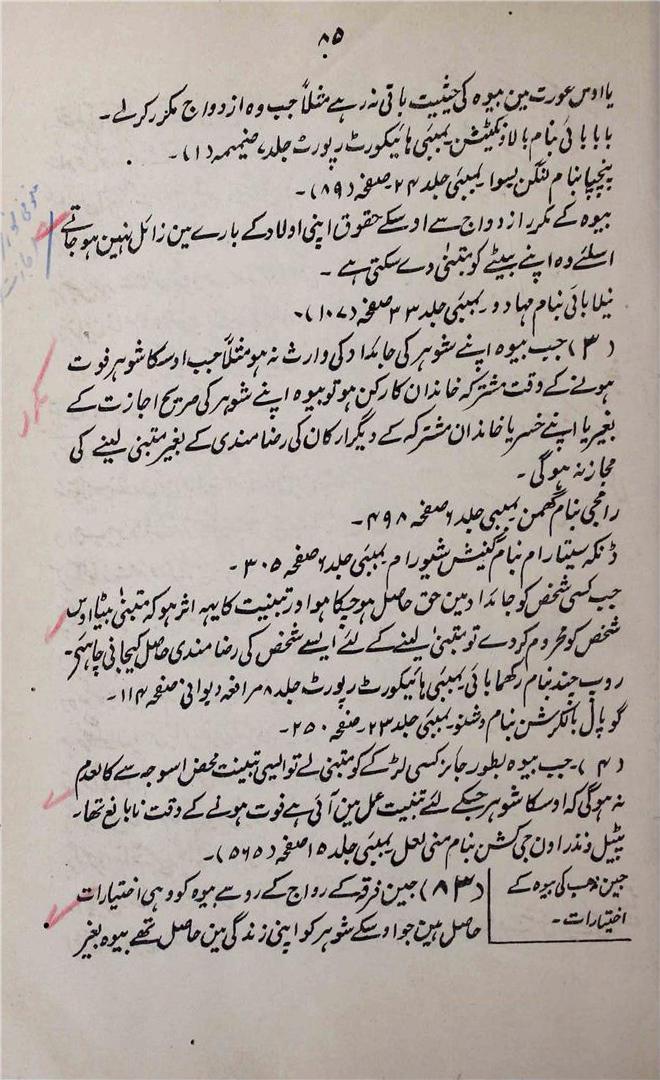 ۸۵
یا اوس عورت مین بیوہ کی حیثیت باقی نہ رہے مثلاً جب وہ ازدواج مکرر کرلے۔
بابا بائی بنام بالا ونکٹیش بمبئی ہائیکورٹ رپورٹ جلد ۷ ضمیمہ (۱)۔
پنچپا بنام لنگن بسوا بمبئی جلد ۲۴ صفحہ (۸۹)۔
بیوہ کے مکرر ازدواج سے اوسکے حقوق اپنی اولاد کے بارے مین زائل نہین ہو جاتے
اسلئے وہ اپنے بیٹے کو متبنٰی دے سکتی ہے ۔
نیلا بائی بنام مہادو ۔ بمبئی جلد ۳۳ صفحہ (۱۰۷)۔
(۳) جب بیوہ اپنے شوہر کی جائداد کی وارث نہ ہو مثلاً جب اوسکا شوہر فوت
ہونے کے وقت مشترکہ خاندان کا رکن ہو تو بیوہ اپنے شوہر کی صریح اجازت کے
بغیر یا اپنے خسر یا خاندان مشترکہ کے دیگر ارکان کی رضامندی کے بغیر متبنی لینے کی
مجاز نہ ہوگی ۔
رامجی بنام گھمن بمبئی جلد ۶ صفحہ ۴۹۸ ۔
ڈنکہ سیتارام بنام گنیش شیورام بمبئی جلد ۶ صفحہ ۳۰۵ ۔
جب کسی شخص کو جائداد مین حق حاصل ہو چکا ہو اور تبنیت کا یہہ اثر ہو کہ متبنٰی بیٹا اوس
شخص کو محروم کردے تو متبنٰی لینے کے لئے ایسے شخص کی رضامندی حاصل کیجانی چاہئے۔
روپ چند بنام رکھما بائی بمبئی ہائیکورٹ رپورٹ جلد ۸ مرافعہ دیوانی صفحہ ۱۱۴ ۔
گوپال بالکرشن بنام وشنو بمبئی جلد ۲۳ ۔ صفحہ ۲۵۰ ۔
(۴)۔ جب بیوہ بطور جائز کسی لڑکے کو متبنٰی لے تو ایسی تبینت محض اسوجہ سے کالعدم
نہ ہوگی کہ اوسکا شوہر جسکے لئے تبنیت عمل مین آئی ہے فوت ہونے کے وقت نابالغ تھا۔
پٹیل ونذراون جی کشن بنام منی لعل بمبئی جلد ۱۵ صفحہ (۵۶۵)۔
جین مذہب کی بیوہ کے
اختیارات ۔
(۸۳) جین فرقہ کے رواج کے روسے بیوہ کو وہی اختیارات
حاصل ہین جو اوسکے شوہر کو اپنی زندگی مین حاصل تھے بیوہ بغیر